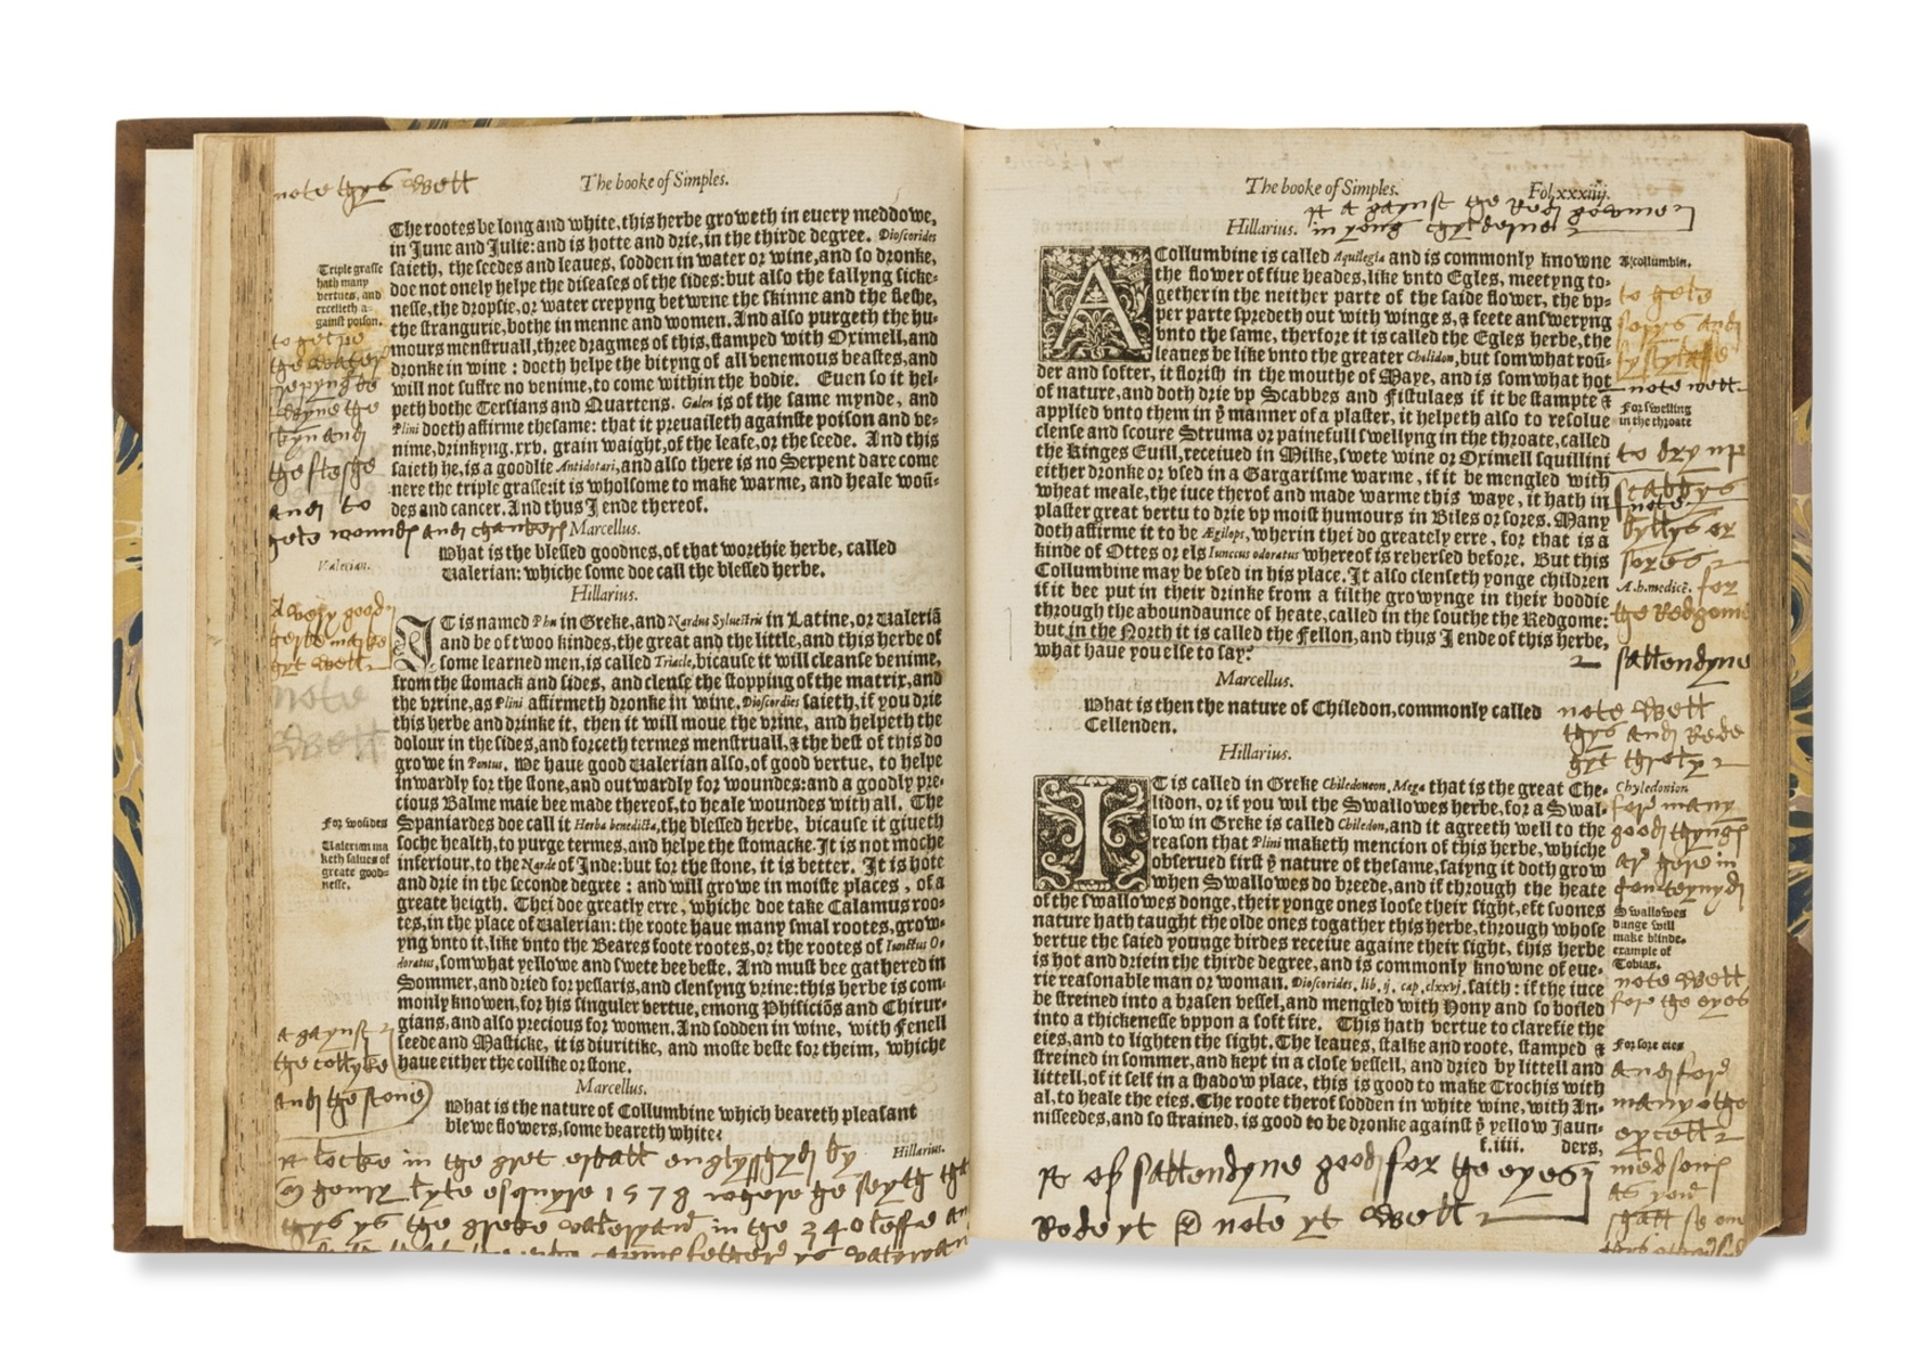 note thys well
The booke of Simples.
The rootes be long and white, this herbe groweth in euery meddowe,
in June and Julie: and is hotte and drie, in the thirde degree. Dioscorides
saieth, the seedes and leaues, sodden in water or wine, and so dronke,
doe not onely helpe the diseases of the sides: but also the fallyng sicke-
nesse, the dropsie, or water crepyng betwene the skinne and the fleshe,
the strangurie, bothe in menne and women. And also purgeth the hu-
mours menstruall, three dragmes of this, stamped with Oximell, and
dronke in wine: doeth helpe the bityng of all venemous beastes, and
will not suffre no venime, to come within the bodie. Euen so it hel-
peth bothe Tersians and Quartens. Galen is of the same mynde, and
Plini doeth affirme thesame: that it preuaileth againste poison and ve-
nime, drinkyng. xxv. grain waight, of the leafe, or the seede. And this
saieth he, is a goodlie Antidotari, and also there is no Serpent dare come
nere the triple grasse: it is wholsome to make warme, and heale woū-
des and cancer. And thus J ende thereof.
Triple grasse
hath many
vertues, and
excelleth a-
gainst poison.
the water
crepyng be
twyne the
skyn and
the fleshe
and to
hele wounds and chankers
Marcellus.
What is the blessed goodnes, of that worthie herbe, called
Ualerian: whiche some doe call the blessed herbe.
Hillarius.
Valerian.
A very good
herbe marke
hyt well
note
well
IT is named Phu in Greke, and Nardus Syluestris in Latine, or Ualeriā
and be of twoo kindes, the great and the little, and this herbe of
some learned men, is called Triacle, bicause it will cleanse venime,
from the stomack and sides, and clense the stopping of the matrix, and
the vrrine, as Plini affirmeth dronke in wine. Dioscordies saieth, if you drie
this herbe and drinke it, then it will moue the vrine, and helpeth the
dolour in the sides, and forceth termes menstruall, & the best of this do
growe in Pontus. We haue good Ualerian also, of good vertue, to helpe
inwardly for the stone, and outwardly for woundes: and a goodly pre-
cious Balme maie bee made thereof, to heale woundes with all. The
Spaniardes doe call it Herba benedicta, the blessed herbe, bicause it giueth
soche health, to purge termes, and helpe the stomacke. It is not moche
inferiour, to the Narde of Inde: but for the stone, it is better. It is hote
and drie in the seconde degree: and will growe in moiste places, of a
greate heigth. Thei doe greatly erre, whiche doe take Calamus roo-
tes, in the place of Ualerian: the roote haue many smal rootes, grow-
yng vnto it, like vnto the Beares foote rootes, or the rootes of Iunctus O-
doratus, somwhat yellowe and swete bee beste. And must bee gathered in
Sommer, and dried for pessaris, and clensyng vrine: this herbe is com-
monly knowen, for his singuler vertue, emong Phisiciōs and Chirur-
gians, and also precious for women. And sodden in wine, with Fenell
seede and Masticke, it is diuritike, and moste beste for theim, whiche
haue either the collike or stone.
For woūdes
Ualerian ma
keth salues of
greate good-
nesse.
agaynst
the collyke
and the stone
Marcellus.
What is the nature of Collumbine which beareth pleasant
blewe flowers, some beareth white?
Hillarius.
locke in the gret erball englysshyd by
henry lyte esquyre 1578 where he seyth that
thys ys the greke valeryand in the 340 leffe an
The booke of Simples.
Fol. xxxiiij.
agaynst the red gowme
in yong chyldrene
Hillarius.
ACollumbine is called Aquilegia and is commonly knowne
the flower of fiue heades, like vnto Egles, meetyng to-
gether in the neither part of the saide flower, the vp-
per parte spredeth out with winges, & feete answeryng
vnto the same, therfore it is called the Egles herbe, the
leaues be like vnto the greater Chelidon, but somwhat roū-
der and softer, it florish in the mouthe of Maye, and is somwhat hot
of nature, and doth drie vp Scabbes and Fistulaes if it be stampte &
applied vnto them in ye manner of a plaster, it helpeth also to resolue
clense and scoure Struma or painefull swellyng in the throate, called
the Kinges Euill, receiued in Milke, swete wine or Oximell squillini
either dronke or vsed in a Gargarisme warme, if it be mengled with
wheat meale, the iuce therof and made warme this waye, it hath in
plaster great vertu to drie vp moist humours in Biles or sores. Many
doth affirme it to be Ægilops, wherin thei do greately erre, for that is a
kinde of Ottes or els Iunccus odoratus whereof is rehersed before. But this
Collumbine may be vsed in his place. It also clenseth yonge children
if it bee put in their drinke from a filthe growynge in their boddie
through the aboundaunce of heate, called in the southe the Redgome:
but in the North it is called the Fellon, and thus J ende of this herbe,
what haue you else to say?
A collumbin.
to hele
sores and
fystylasse
note well
For swelling
in the throate
to dry up
scabbys
note
byllys or
sores
A. h. medicē. for
the Redgome
sallendyne
Marcellus.
What is then the nature of Chiledon, commonly called
Cellenden.
note well
thys and Rede
hyt throly
Hillarius.
IT is called in Greke Chiledoneon, Mega that is the great Che-
lidon, or if you wil the Swallowes herbe, for a Swal-
low in Greke is called Chiledon, and it agreeth well to the
reason that Plini maketh mencion of this herbe, whiche
obserued first ye nature of thesame, saiyng it doth grow
when Swallowes do breede, and if through the heate
of the swallowes donge, their yonge ones loose their sight, eft soones
nature hath taught the olde ones together this herbe, through whose
vertue the saied younge birdes receiue againe their sight, this herbe
is hot and driein the thirde degree, and is commonly knowne of eue-
rie reasonable man or woman. Dioscorides, lib. ij. cap. clxxvj. saith: if the iuce
be streined into a brasen vessel, and mengled with Hony and so boiled
into a thickenesse vppon a soft fire. This hath vertue to clarefie the
eies, and to lighten the sight. The leaues, stalke and roote, stamped &
streined in sommer, and kept in a close vessell, and dried by littell and
littell, of it self in a shadow place, this is good to make Trochis with
al, to heale the eies. The roote therof sodden in white wine, with An-
nisseedes, and so strained, is good to be dronke against ye yellow Jaun-
f.iiii. ders,
Chyledonion
for many
good thyngs
ar here in
Swallowes
dunge will
make blinde.
example of
Tobias.
note well
for the eyes
For sore eies
and for
many othe
excell
medsons
as you
shall se
of sallendyne good for the eyes
Rede yt & note yt well